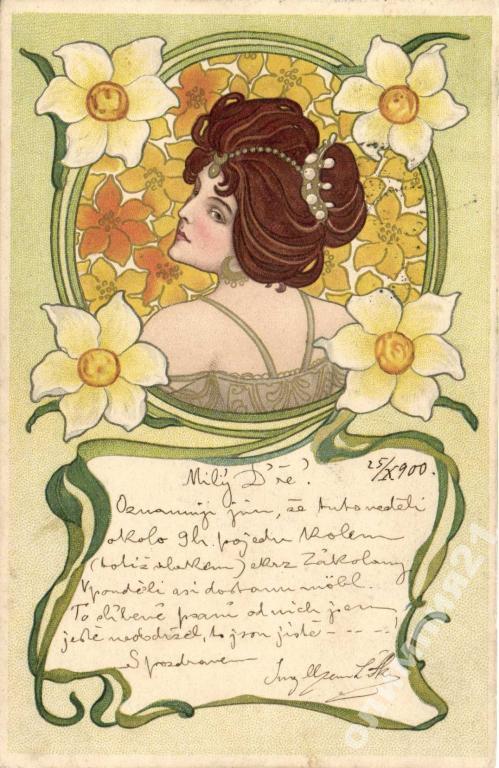 Milý D ře! 25/X 900.
Oznamuji jim, že tuto neděli
okolo 9h. pojedu kolem
(totiž vlakem) skrz Zákolany
V pondělí asi dostanu möbl.
To slíbené psaní od nich jsem
ještě nedodržel, to jsou jistě - - - -!
S pozdravem
Olimpia21